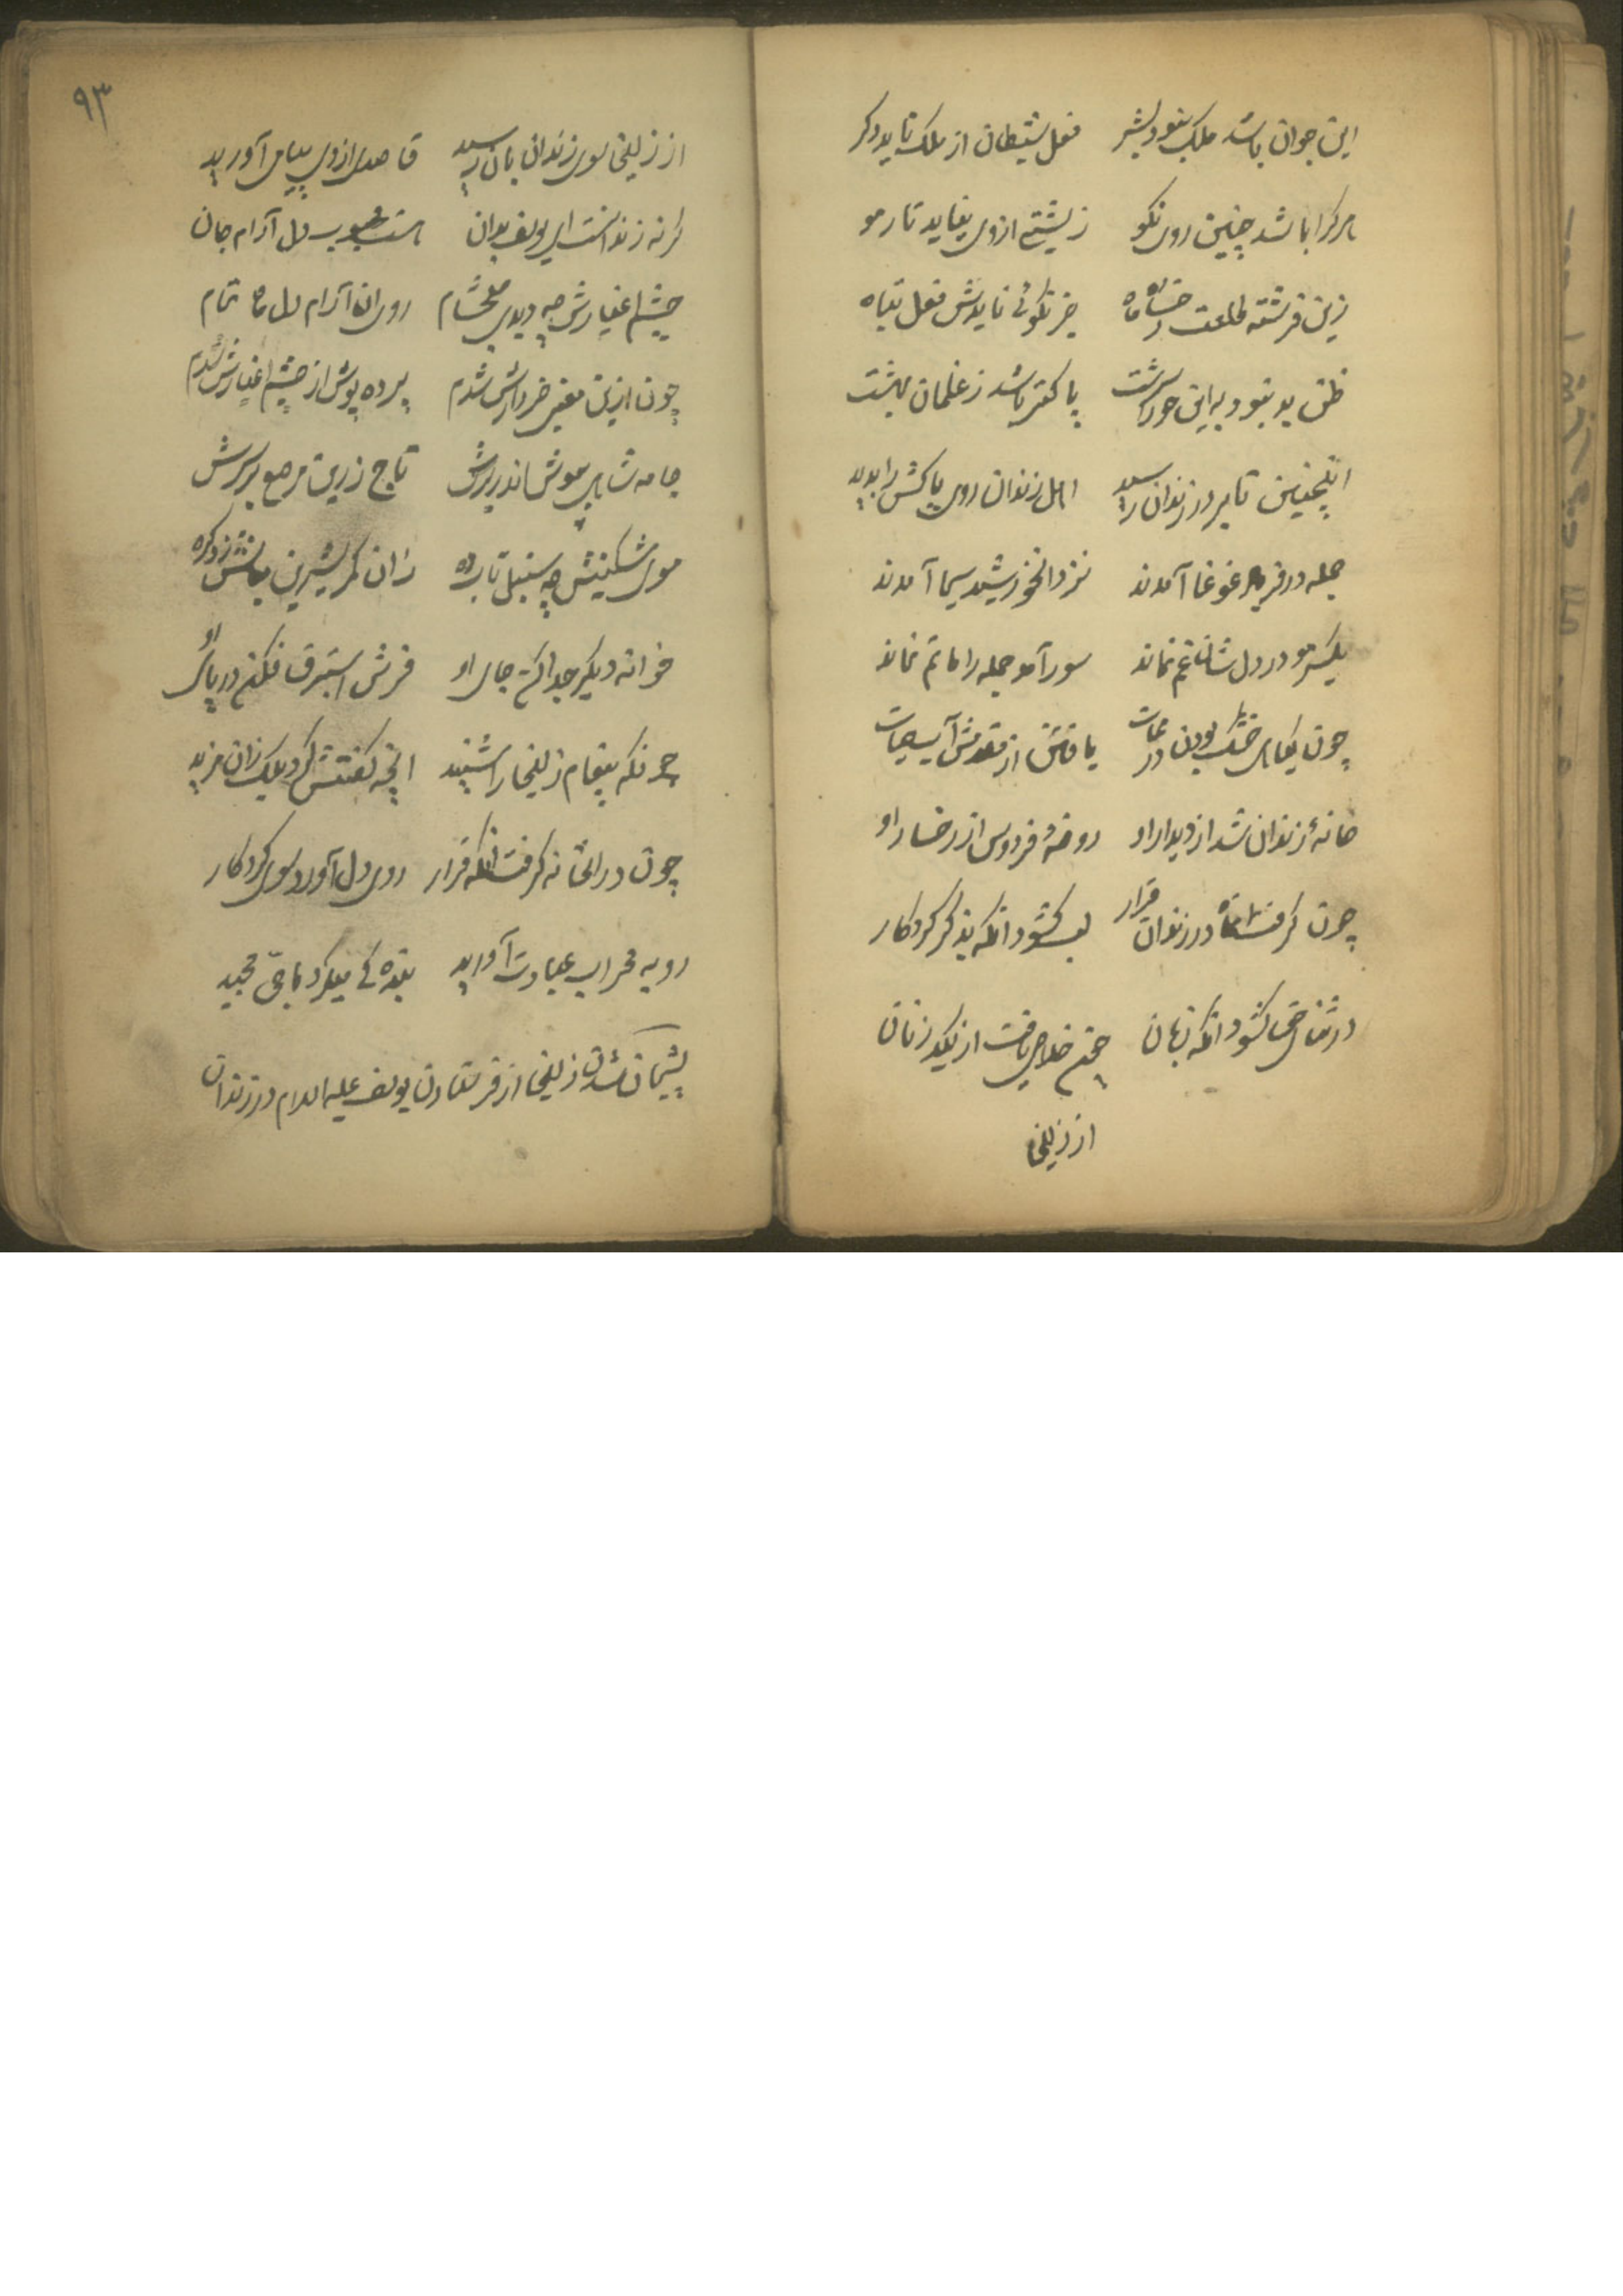 این جوان باشد ملک نبود بشر فعل شیطان از ملک ناید دگر
هر کرا باشد چنین روی نکو زشتی از وی نیاید تار مو
زین فرشته طلعت رخساره ماه جز نکوئی نایدش فعل تباه
ظن بد نبود به این حورا سرشت پاکتر باشد ز غلمان بهشت
اینچنین تا بر در زندان رسید اهل زندان روی پاکش را بدید
جمله در فریاد غوغا آمدند نزد آنخورشید سیما آمدند
یکسر مو در دل شان غم نماند سور آمد جمله را ماتم نماند
چون گیاهی خشک بودن در ممات یافتن از مقدمش آب حیات
خانهٔ زندان شد از دیدار او روضهٔ فردوس از رخسار او
چون گرفت آنماه در زندان قرار لب گشود آنگه بذکر کردگار
در ثنای حق گشود آنگه زبان جستم خلاص یافت از کید زنان
از زلیخا
۹۳
از زلیخا سوی زندان بان رسید قاصدی از وی پیامی آورید
گر نه زندانست ای یوسف بدان هست محبوب دل آرام جان
چشم اغیارش چه دیدی صبح شام روی آن آرام دل ماه تمام
چون ازین معنی خبردارش شدم پرده پوش از چشم اغیارش شدم
جامه شاهی بپوش اندر برش تاج زرین مرصع بر سرش
موی مشکینش چه سنبل تاب ده زان کمر شیرین میانش زد گره
خانه دیگر جدا کن جای او فرش استبرق فکن در پای او
چونکه پیغام زلیخا را شنید آنچه گفتش کرد یک زان مزید
چون در آنخانه گرفت آنگه قرار روی دل آورد سوی کردگار
رو به محراب عبادت آورید بنده گی میکرد با حی مجید
پشیمان شدن زلیخا از فرستادن یوسف علیه السلام در زندان